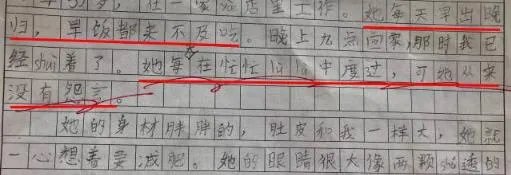 在一家 店里工作。她每天早出晚
归，早饭都来不及吃。晚上九点回家，那时我已
经shuì着了。她每在忙忙lùlù中度过，可她从来
没有怨言。
她的身材胖胖的，肚皮和我一样大，她就
一心想着要减肥。她的眼睛很大像两颗shú透的